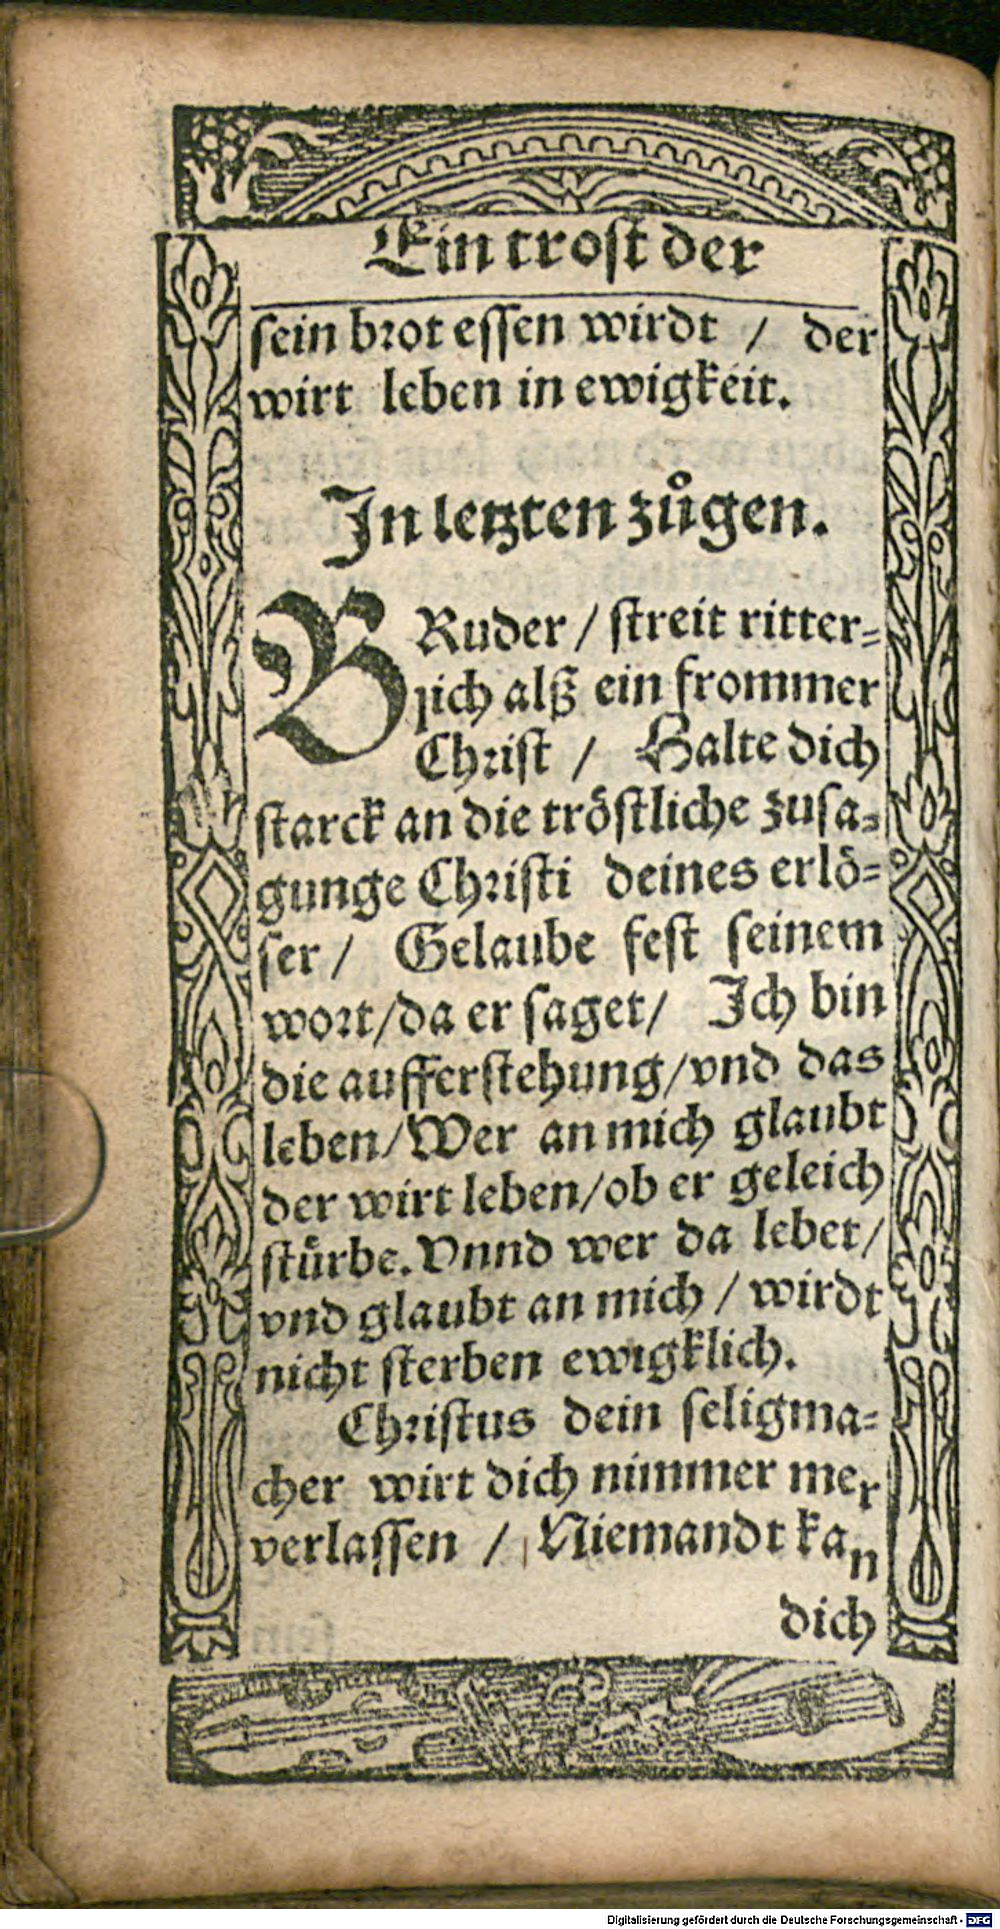 Ein trost der
sein brot essen wirdt / der
wirt leben in ewigkeit.
In letzten zůgen.
BRuder / streit ritter=
lich alß ein frommer
Christ / Halte dich
starck an die tröstliche zusa=
gunge Christi deines erlö=
ser / Gelaube fest seinem
wort/da er saget/ Ich bin
die aufferstehung/vnd das
leben/Wer an mich glaubt
der wirt leben/ob er geleich
stürbe. Vnnd wer da lebet/
vnd glaubt an mich / wirdt
nicht sterben ewigklich.
Christus dein seligma=
cher wirt dich nimmer mer
verlassen / Niemandt kan
dich
Digitalisierung gefördert durch die Deutsche Forschungsgemeinschaft - DFG